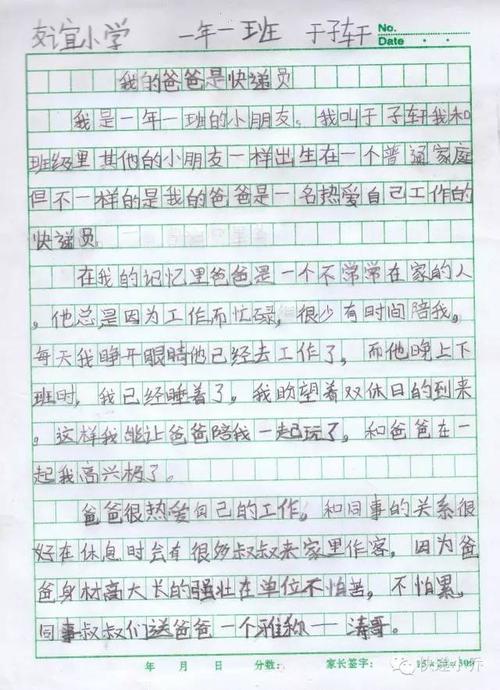 友谊小学 一年一班 于子轩 No.
Date
我的爸爸是快递员
我是一年一班的小朋友。我叫于子轩我和
班级里其他的小朋友一样出生在一个普通家庭
但不一样的是我的爸爸是一名热爱自己工作的
快递员。
在我的记忆里爸爸是一个不常常在家的人
。他总是因为工作而忙碌,很少有时间陪我。
每天我睁开眼睛他已经去工作了,而他晚上下
班时,我已经睡着了。我盼望着双休日的到来
。这样我能让爸爸陪我一起玩了,和爸爸在一
起我高兴极了。
爸爸很热爱自己的工作。和同事的关系很
好在休息时会有很多叔叔来家里作客,因为爸
爸身材高大长的强壮在单位不怕苦,不怕累,
同事叔叔们送爸爸一个雅称——涛哥。
年 月 日 分数: 家长签字: 快递小乔